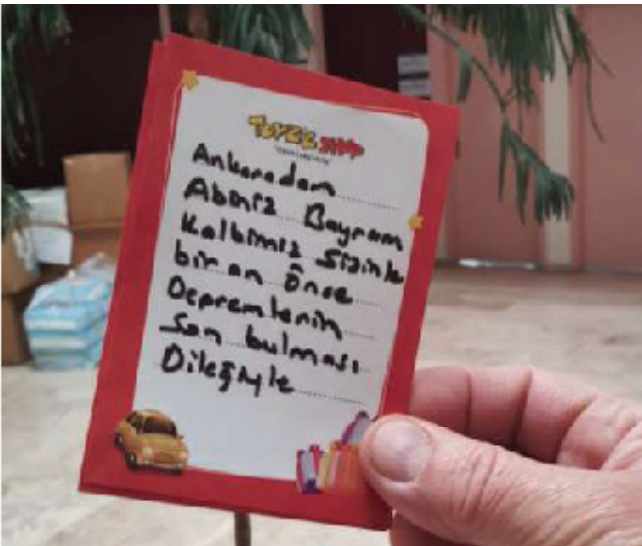 TOYZZ SHOP
Ankaradan
Abiniz Bayram
Kalbimiz Sizinle
bir an Önce
Depremlerin
Son bulması
Dileğiyle